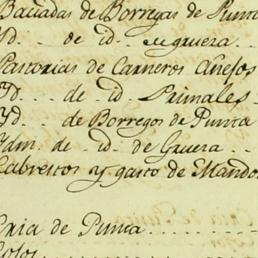 Baciadas de Borregas de Punta
Yd. de id. de gruera
Pastorias de Carneros Añejos
Yd. . . de . id. Primales
Yd. . . de Borregos de Punta
Ydm. de . id. de Gruera
Cabrestos y gasto de Mandos
Cria de Punta